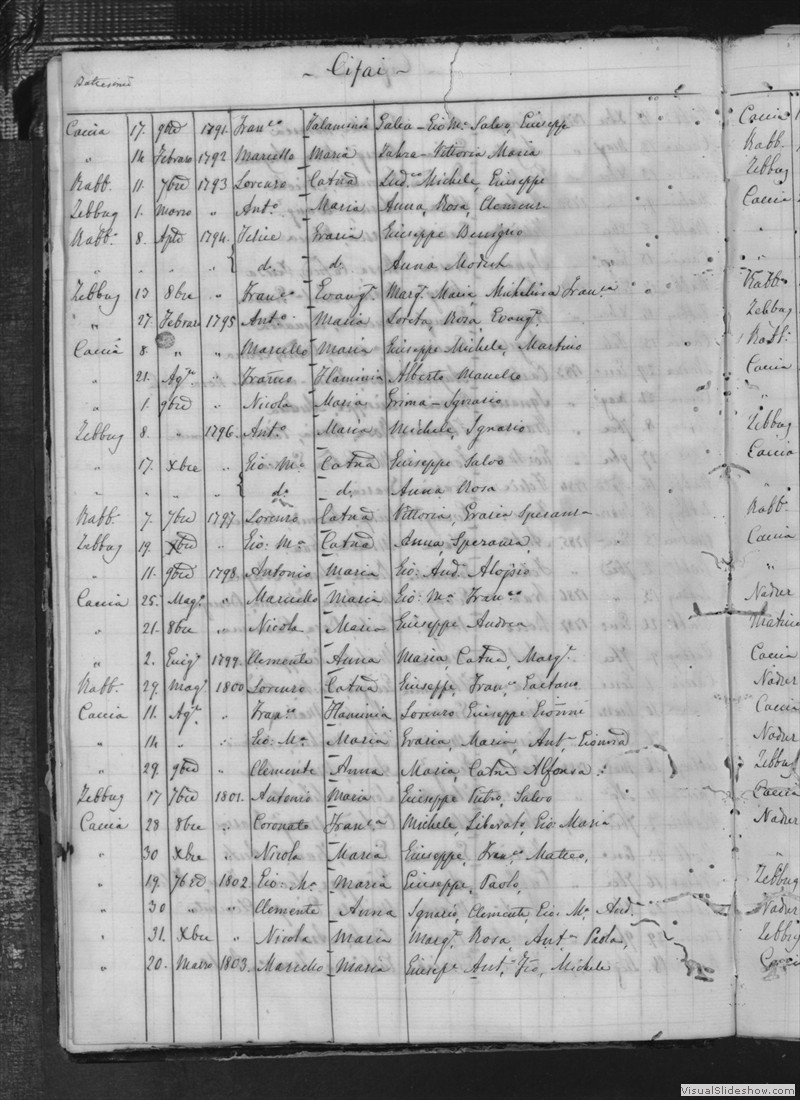 ~ Cifai ~
Battesimi
Caccia 17. 9bre 1791. Franco Falaminia Galea - Gio: Ma Salvo, Giuseppe
" 14 Febraro 1792 Marcello Maria Vittoria Maria
Rabb. 11. 7bre 1793 Lorenzo Catna Ludco Michele, Giuseppe
Zebbug 1. Marzo " Anto Maria Anna, Rosa, Clemenza
Rabb. 8. Aple 1794. Felice Grazia Giuseppe Benigno
" " " " do do Anna Modest
Zebbug 13 8bre " Franco Evangta Margta Maria, Michelina Franca
" 27. Febraro 1795 Anto Maria Loreta, Rosa, Evangta
Caccia 8. " " Marcello Maria Giuseppe Michele, Martino
" 21. Agto " Franco Flaminia Alberto
" 1. 9bre " Nicola Maria Grima - Ignazio
Zebbug 8. " 1796. Anto Maria Michele, Ignazio
" 17. Xbre " Gio: Ma Catna Giuseppe Salvo
" " " " do do Anna Rosa
Rabb. 7. 7bre 1797 Lorenzo Catna Vittoria, Grazia Speranza
Zebbug 19. Xbre " Gio: Ma Catna Anna, Speranza,
" 11. 9bre 1798. Antonio Maria Gio: And. Aloisio
Caccia 25. Mago " Marcello Maria Gio: Ma Franco
" 21. 8bre " Nicola Maria Giuseppe Andrea
" 2. Giugo 1799. Clemente Anna Maria, Catna, Margta
Rabb. 29. Mago 1800 Lorenzo Catna Giuseppe, Franco Gaetano
Caccia 11. Agto " Franco Flaminia Lorenzo Giuseppe
" 14 " " Gio: Ma Maria Grazia, Maria, Anta
" 29. 9bre " Clemente Anna Maria, Catna Alfonsa
Zebbug 17 7bre 1801. Antonio Maria Giuseppe Pietro, Salvo
Caccia 28 8bre " Coronato Franca Michele, Liberato, Gio: Maria
" 30 Xbre " Nicola Maria Giuseppe, Franco Matteo,
" 19. 7bre 1802. Gio: Ma Maria Giuseppe, Paolo,
" 30 " " Clemente Anna Ignazio, Clemente, Gio: Ma And.
" 31. Xbre " Nicola Maria Margta Rosa, Anta Paola,
" 20. Marzo 1803. Marcello Maria Giusepe Anto, Michele
Caccia
Rabb.
Zebbug
Caccia
"
"
Rabb.
Zebbug
Rabb.
Caccia
"
Zebbug
Caccia
"
Rabb.
Caccia
"
Nadur
Caccia
Nadur
Caccia
Nadur
Zebbug
Caccia
Nadur
Zebbug
Nadur
Zebbug
Caccia
VisualSlideshow.com